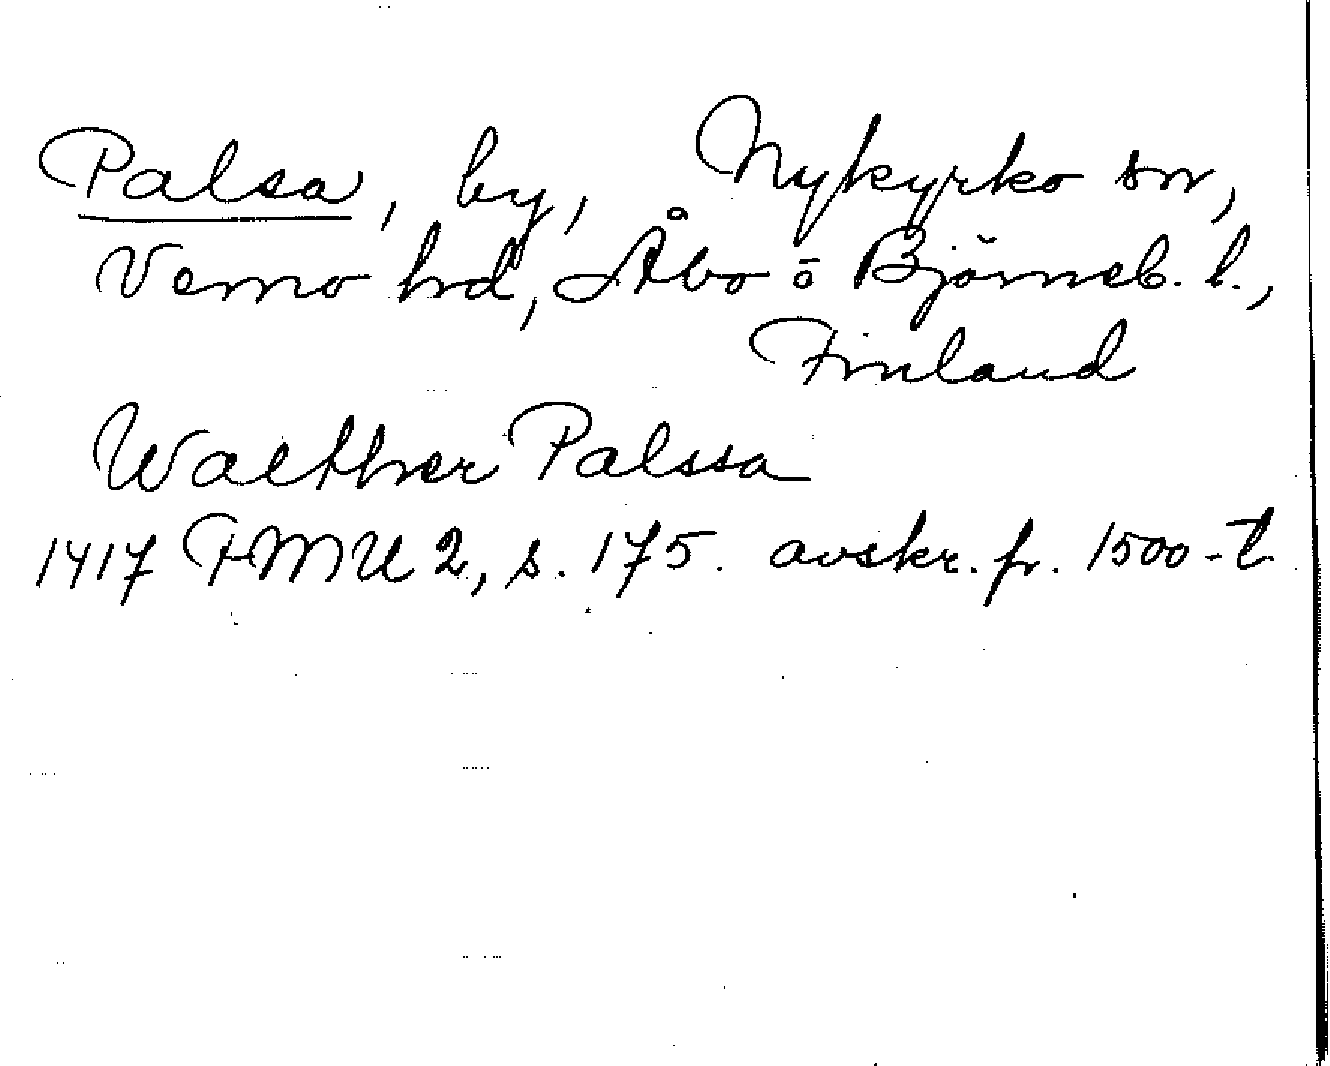 Palsa, by, Nykyrko sn,
Vemo hd, Åbo o Björneb. l.,
Finland
Walther Palssa
1417 FMU 2, s. 175. avskr. fr. 1500-t.